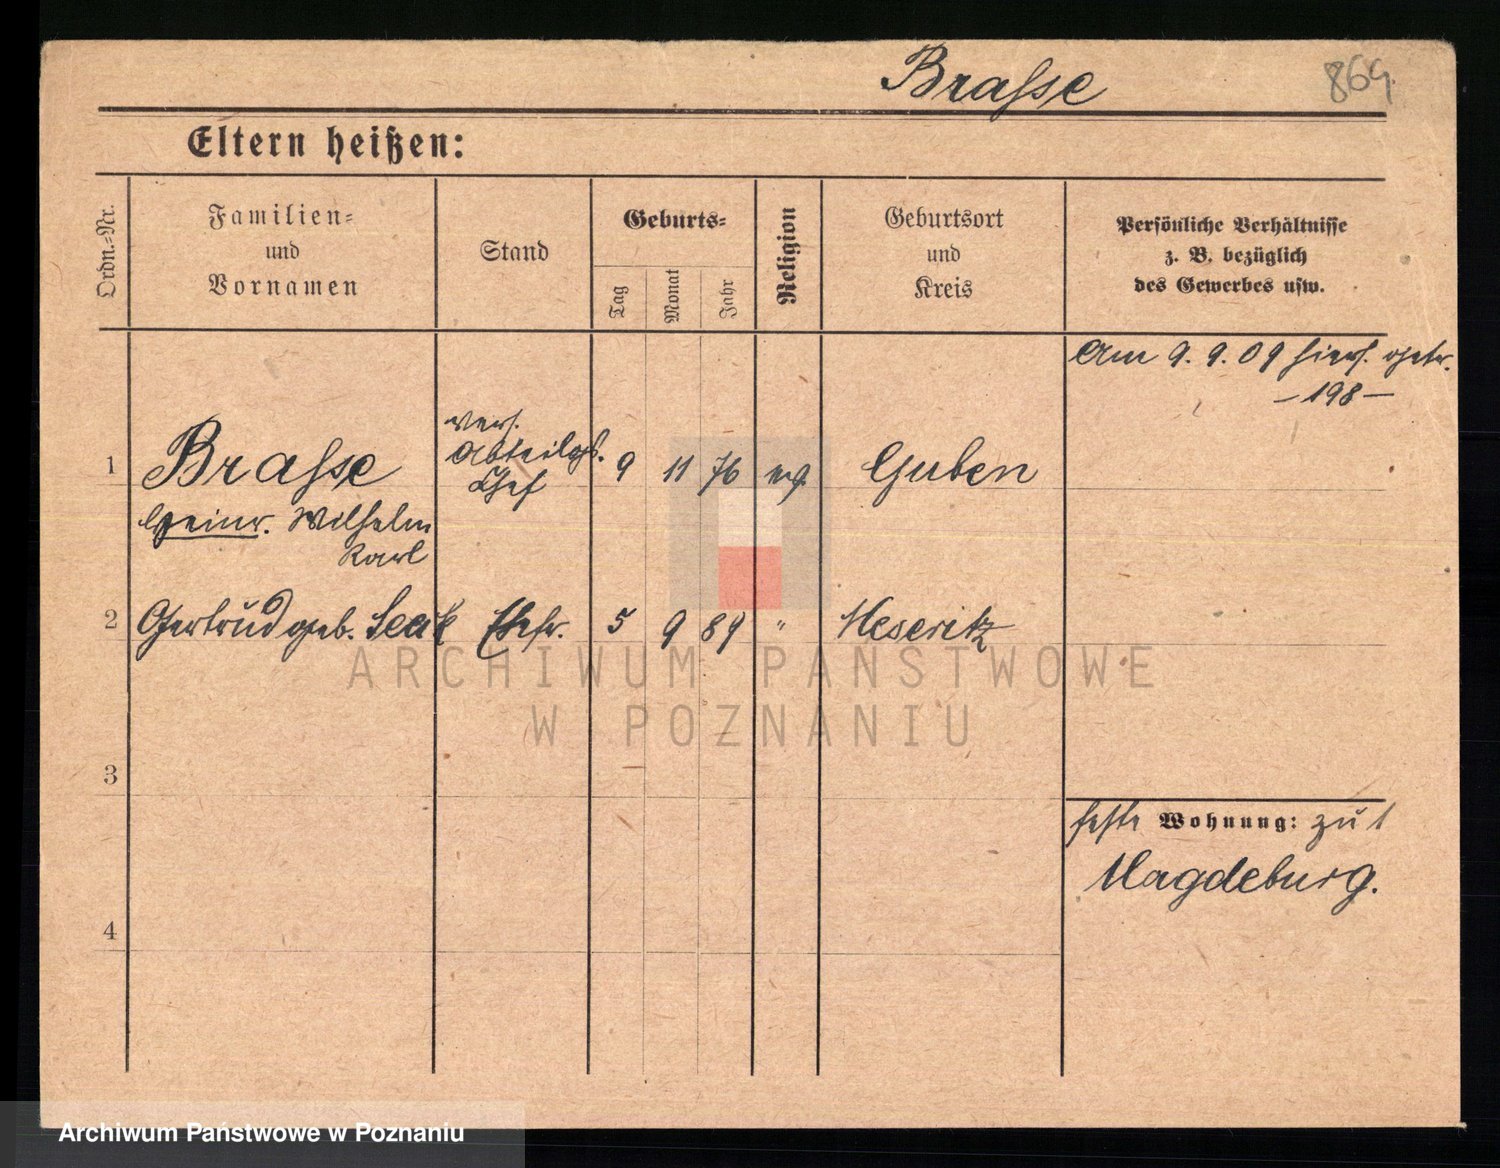 Braſse 869.
Eltern heißen:
Ordn.-Nr.
Familien-
und
Vornamen
Stand
Geburts-
Tag
Monat
Jahr
Religion
Geburtsort
und
Kreis
Persönliche Verhältnisse
z. B. bezüglich
des Gewerbes usw.
Am 9. 9. 09 hier getr.
– 198 –
1 Braſse
Heinr. Wilhelm
Karl
Abteilgs.
Chef
9 11 76 ev. Guben
2 Gertrud geb. Ehefr. 5 9 89 " Meseritz
3
feste Wohnung: zu
Magdeburg.
4
ARCHIWUM PAŃSTWOWE
W POZNANIU
Archiwum Państwowe w Poznaniu